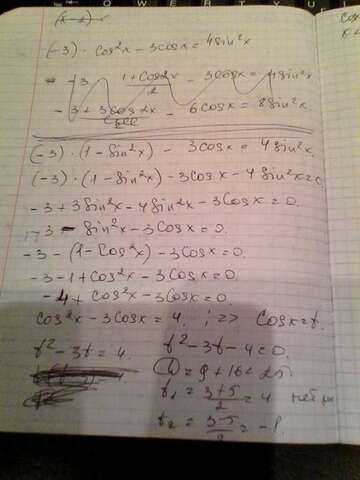 QWERTYU
(-3) · cos²x - 3cosx = 4sin²x
-3 (1+cos2x)/2 - 3cosx = 4sin²x
-3 + 3cos2x - 6cosx = 8sin²x
(-3) · (1 - sin²x) - 3cosx = 4sin²x
(-3) · (1 - sin²x) - 3cosx - 4sin²x = 0.
-3 + 3sin²x - 4sin²x - 3cosx = 0.
-3 - sin²x - 3cosx = 0.
-3 - (1 - cos²x) - 3cosx = 0.
-3 - 1 + cos²x - 3cosx = 0.
-4 + cos²x - 3cosx = 0.
cos²x - 3cosx = 4. ; => cosx = t.
t² - 3t = 4. t² - 3t - 4 = 0.
D = 9 + 16 = 25
t₁ = (3+5)/2 = 4 нет
t₂ = (3-5)/2 = -1.